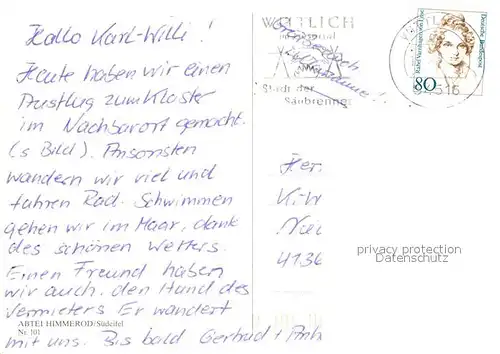 Hallo Karl-Willi!
Heute haben wir einen
Ausflug zum Kloster
im Nachbarort gemacht.
(s Bild). Ansonsten
wandern wir viel und
fahren Rad. Schwimmen
gehen wir im Maar, dank
des schönen Wetters.
Einen Freund haben
wir auch. den Hund des
Vermieters Er wandert
mit uns. Bis bald Gertrud +
ABTEI HIMMEROD/Südeifel
Nr. 101
WITTLICH
Stadt der
Säubrenner
Deutsche Bundespost
Rahel Varnhagen von Ense
80
516
Her
K-W
4136
privacy protection
Datenschutz